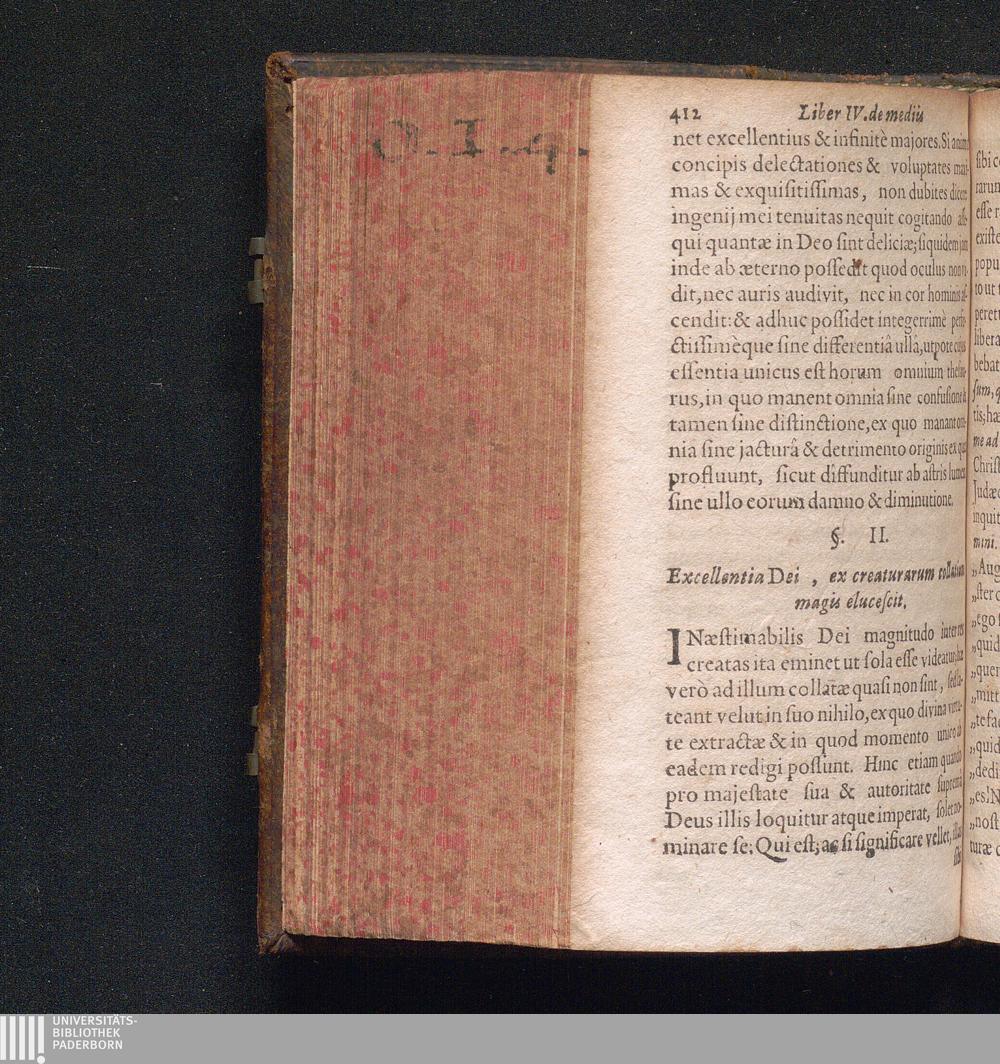 412 Liber IV. de mediis
net excellentius & infinitè majores. Si anim
concipis delectationes & voluptates maxi-
mas & exquisitissimas, non dubites dicere
ingenij mei tenuitas nequit cogitando asse-
qui quantæ in Deo sint deliciæ; siquidem jam
inde ab æterno possedit quod oculus non vi-
dit, nec auris audivit, nec in cor hominis as-
cendit: & adhuc possidet integerrimè perfe-
ctissimèque sine differentiâ ullâ, utpote cujus
essentia unicus est horum omnium thesau-
rus, in quo manent omnia sine confusione &
tamen sine distinctione, ex quo manant om-
nia sine jacturâ & detrimento originis ex qua
profluunt, sicut diffunditur ab astris lumen
sine ullo eorum damno & diminutione.
§. II.
Excellentia Dei, ex creaturarum collatione
magis elucescit.
INæstimabilis Dei magnitudo inter res
creatas ita eminet ut sola esse videatur: hæ
verò ad illum collatæ quasi non sint, sed la-
teant velut in suo nihilo, ex quo divina virtu-
te extractæ & in quod momento unico ab
eadem redigi possunt. Hinc etiam quando
pro majestate sua & autoritate supremâ
Deus illis loquitur atque imperat, solet no-
minare se: Qui est; ac si significare vellet, illas
sibi
sibi co
rarum
esse n
existe
popu
to ut
peret
libera
bebat
sum, q
tis; hæ
me ad
Christ
Judæo
inquit
mini.
„Aug
„ster c
„ego
„quid
„quer
„mitt
„te fac
„quid
„dedi
„es! N
„nost
turæ c
UNIVERSITÄTS-
BIBLIOTHEK
PADERBORN